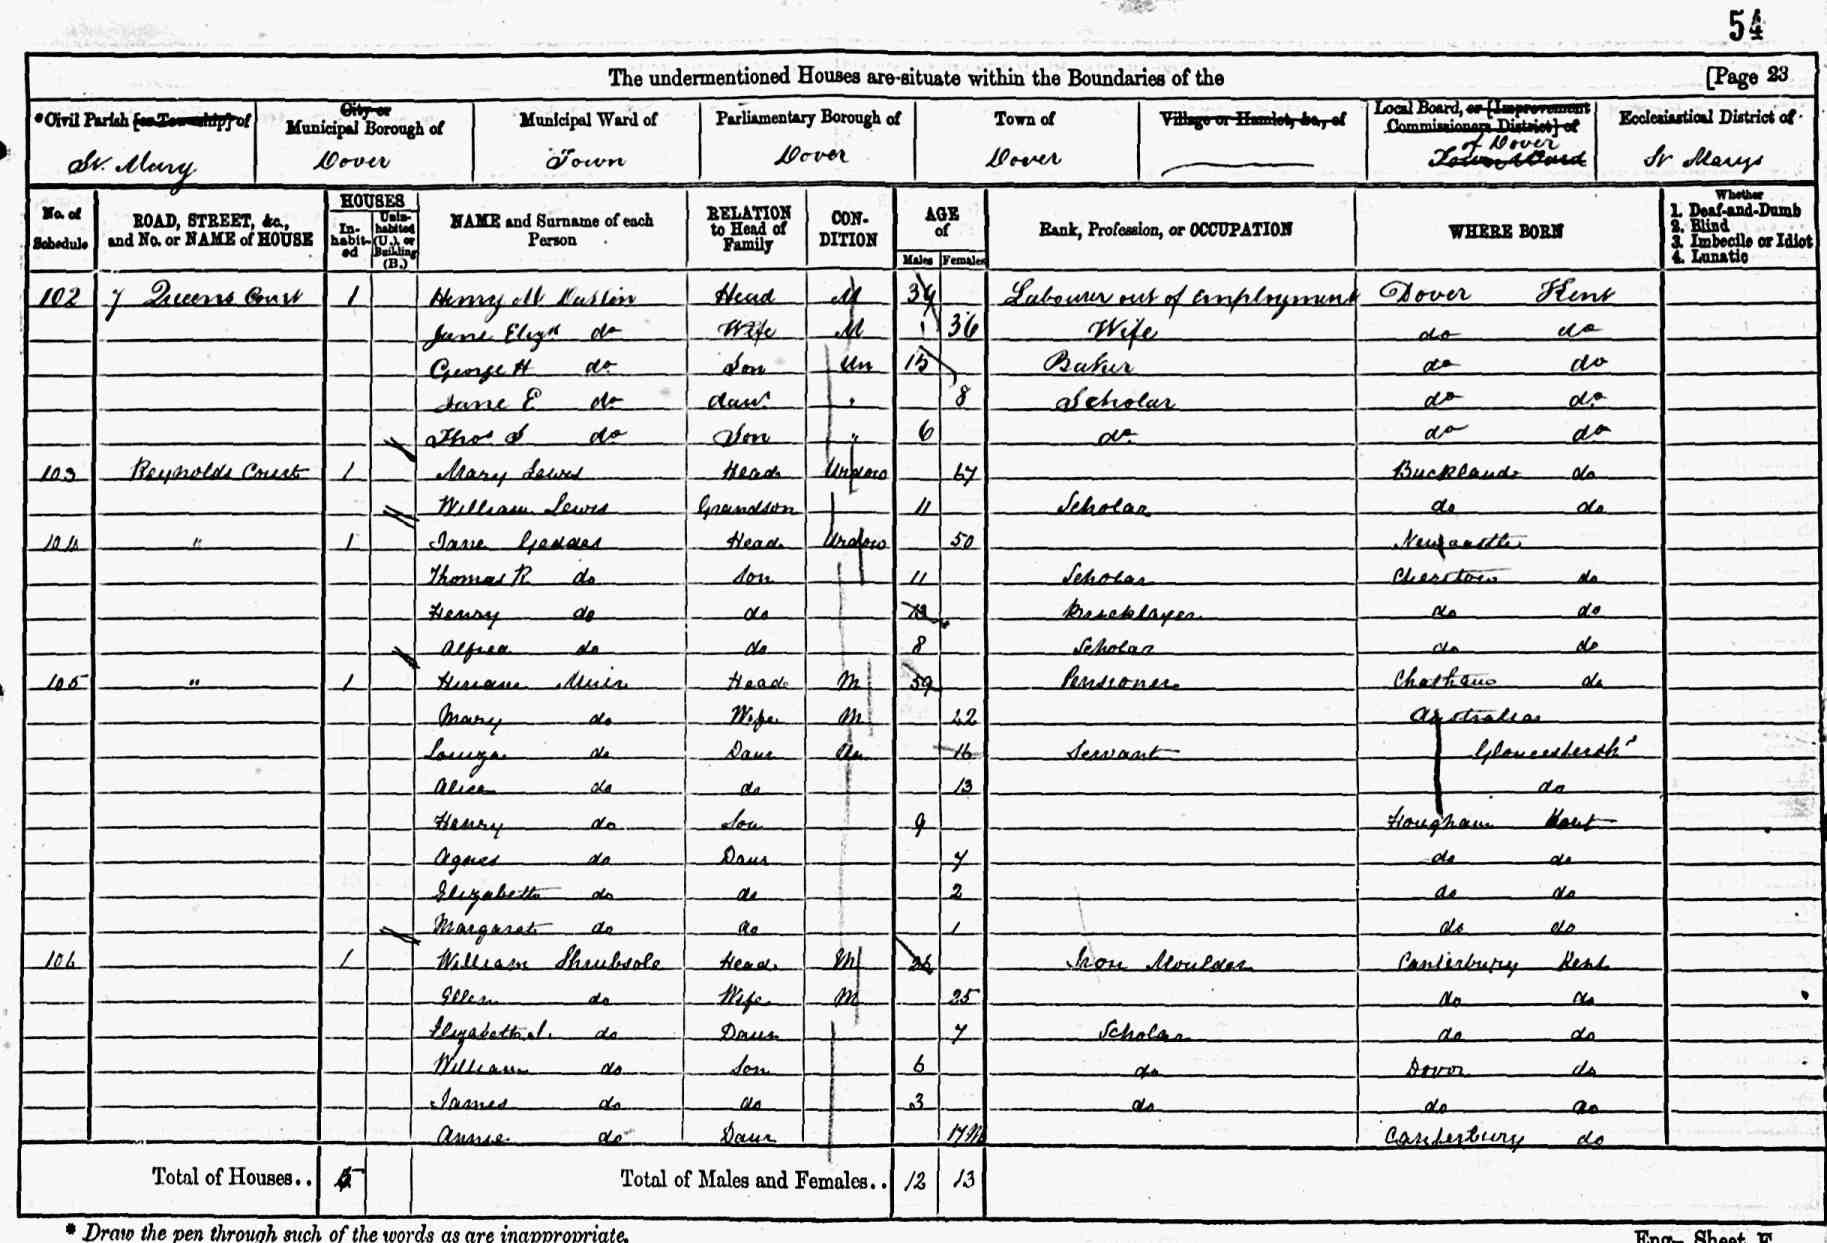 54
The undermentioned Houses are situate within the Boundaries of the [Page 23
*Civil Parish [or Township] of City or Municipal Borough of Municipal Ward of Parliamentary Borough of Town of Village or Hamlet, &c., of Local Board, or [Improvement Commissioners District] of Ecclesiastical District of
St. Mary Dover Town Dover Dover of Dover Town Ward St Marys
No. of Schedule ROAD, STREET, &c., and No. or NAME of HOUSE HOUSES Inhabited Uninhabited (U.), or Building (B.) NAME and Surname of each Person RELATION to Head of Family CONDITION AGE of Males Females Rank, Profession, or OCCUPATION WHERE BORN Whether 1. Deaf-and-Dumb 2. Blind 3. Imbecile or Idiot 4. Lunatic
102 7 Queens Court 1 Henry M Head M Labourer out of employment Dover Kent
Jane Elizth do Wife M 36 Wife do do
George H do Son Un 15 Baker do do
Jane E do daur " 8 Scholar do do
Thos S do Son " 6 do do do
103 Reynolds Court 1 Mary Lewis Head Widow 67 Buckland do
William Lewis Grandson 11 Scholar do do
104 " 1 Jane Geddes Head Widow 50 Newcastle
Thomas R do Son 11 Scholar do
Henry do do Bricklayer do do
Alfred do do 8 Scholar do do
105 " 1 Hiram Muir Head M 59 Pensioner Chatham do
Mary do Wife M 42 Australia
Louiza do Daur Un 16 Servant Gloucestersh
Alice do do 13 do
Henry do Son 9 Hougham Kent
Agnes do Daur 7 do do
Elizabeth do do 2 do do
Margaret do do 1 do do
106 1 William Shrubsole Head M 26 Iron Moulder Canterbury Kent
Ellen do Wife M 25 do do
Elizabeth do Daur 7 Scholar do do
William do Son 6 do Dover do
James do do 3 do do do
Annie do Daur Canterbury do
Total of Houses.. 5 Total of Males and Females.. 12 13
* Draw the pen through such of the words as are inappropriate.
Eng.— Sheet F